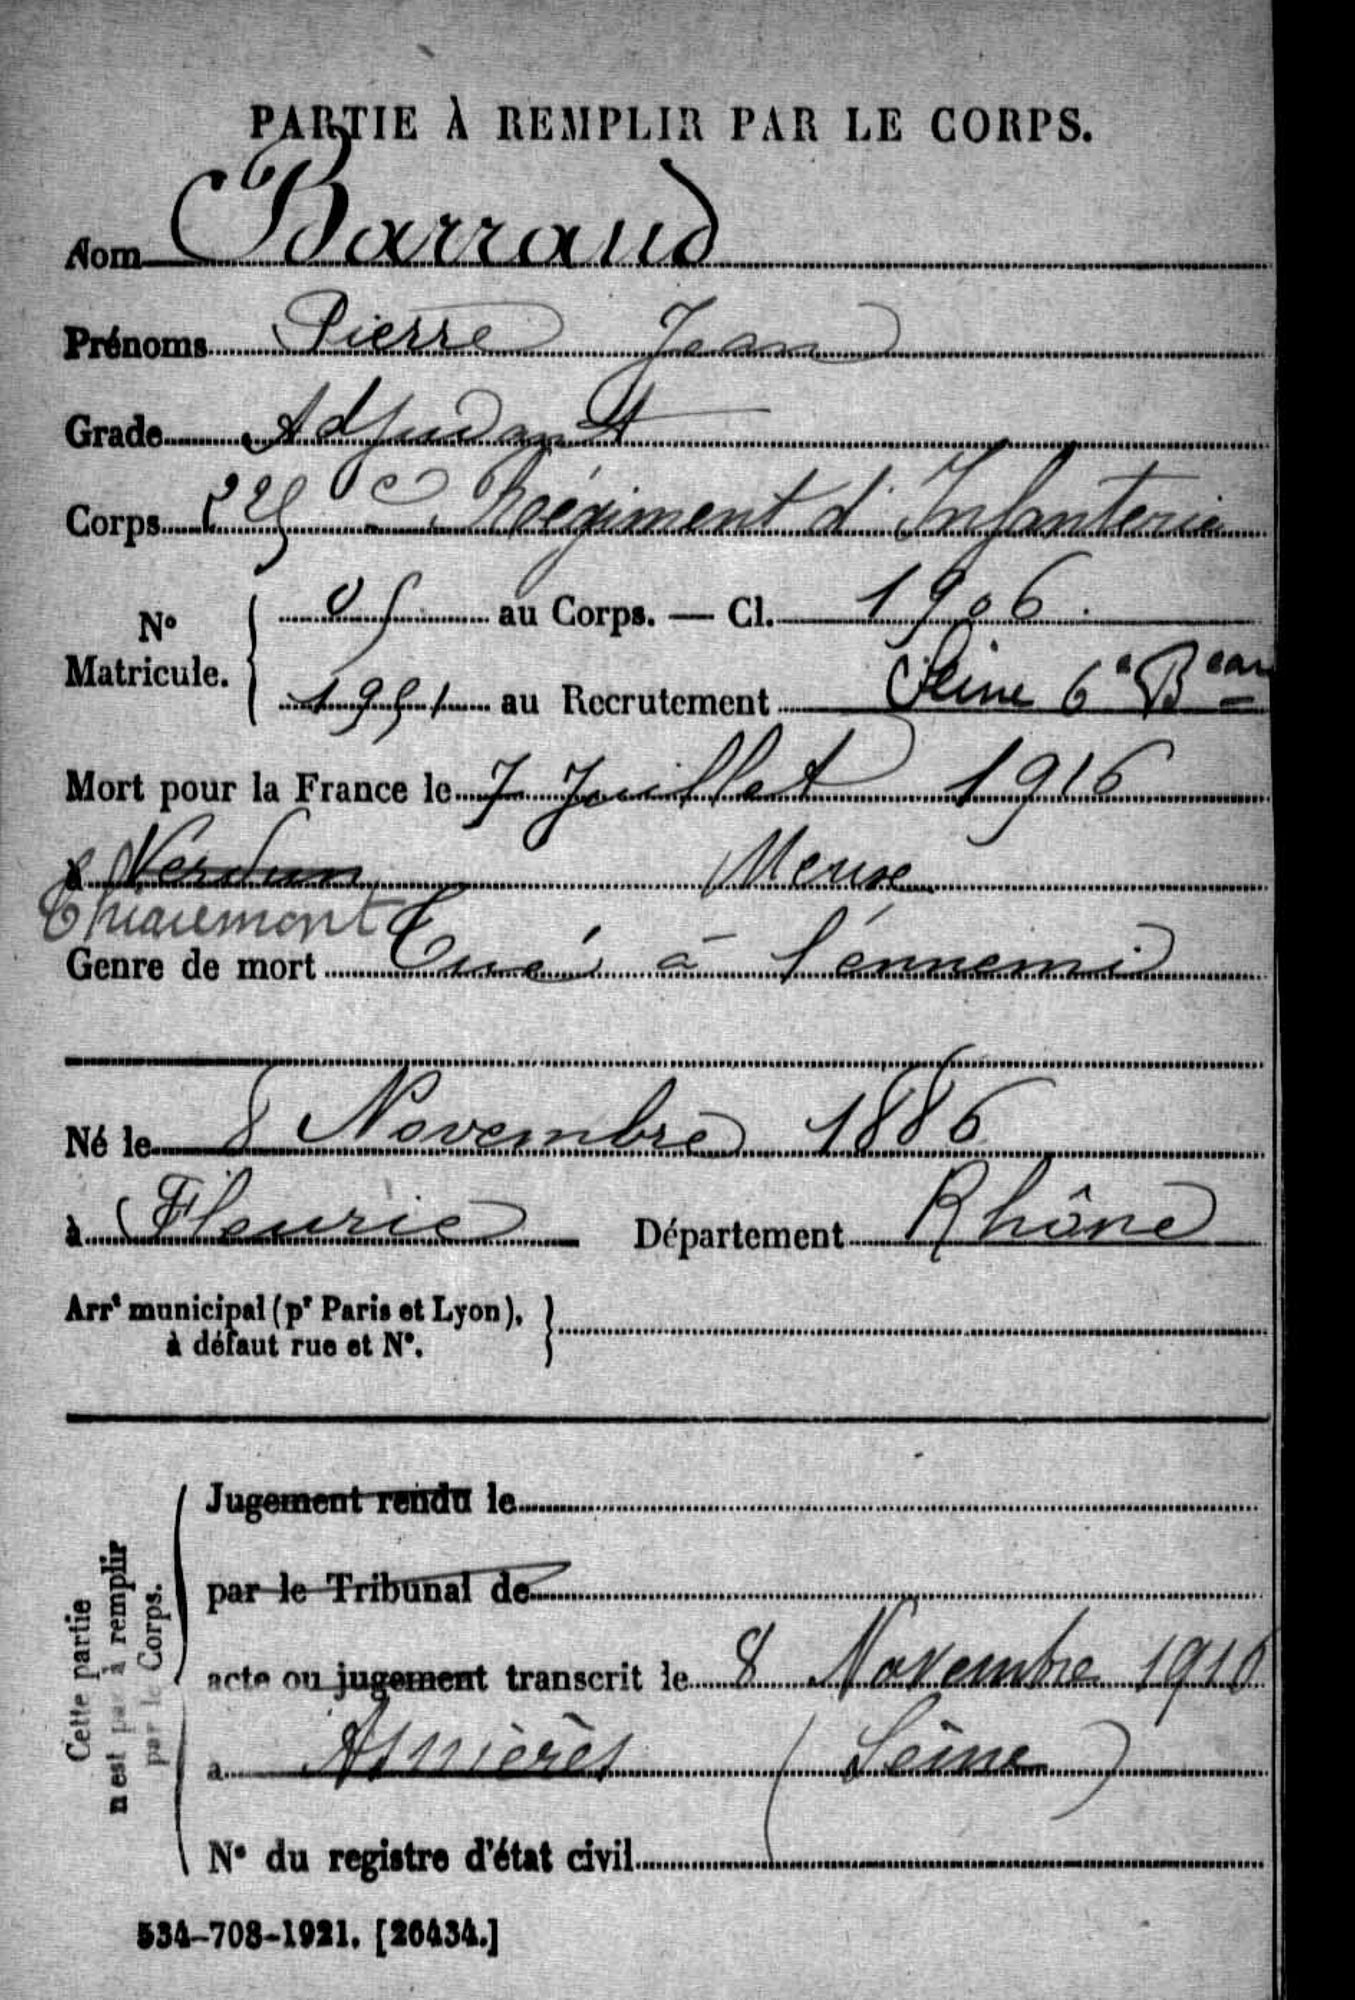 PARTIE À REMPLIR PAR LE CORPS.
Nom Barraud
Prénoms Pierre Jean
Grade Adjudant
Corps e Régiment d'Infanterie
N° Matricule.
05 au Corps. — Cl. 1906.
1951 au Recrutement Seine 6e Beau
Mort pour la France le 7 Juillet 1916
à Verdun Meuse
Thiaumont
Genre de mort Tué à l'énnemi
Né le 8 Novembre 1886
à Fleurie Département Rhône
Arrt municipal (pr Paris et Lyon),
à défaut rue et N°.
Cette partie
n'est pas à remplir
par le Corps.
Jugement rendu le
par le Tribunal de
acte ou jugement transcrit le 8 Novembre 1916
a Asnières (Seine)
N° du registre d'état civil
534-708-1921. [26434.]